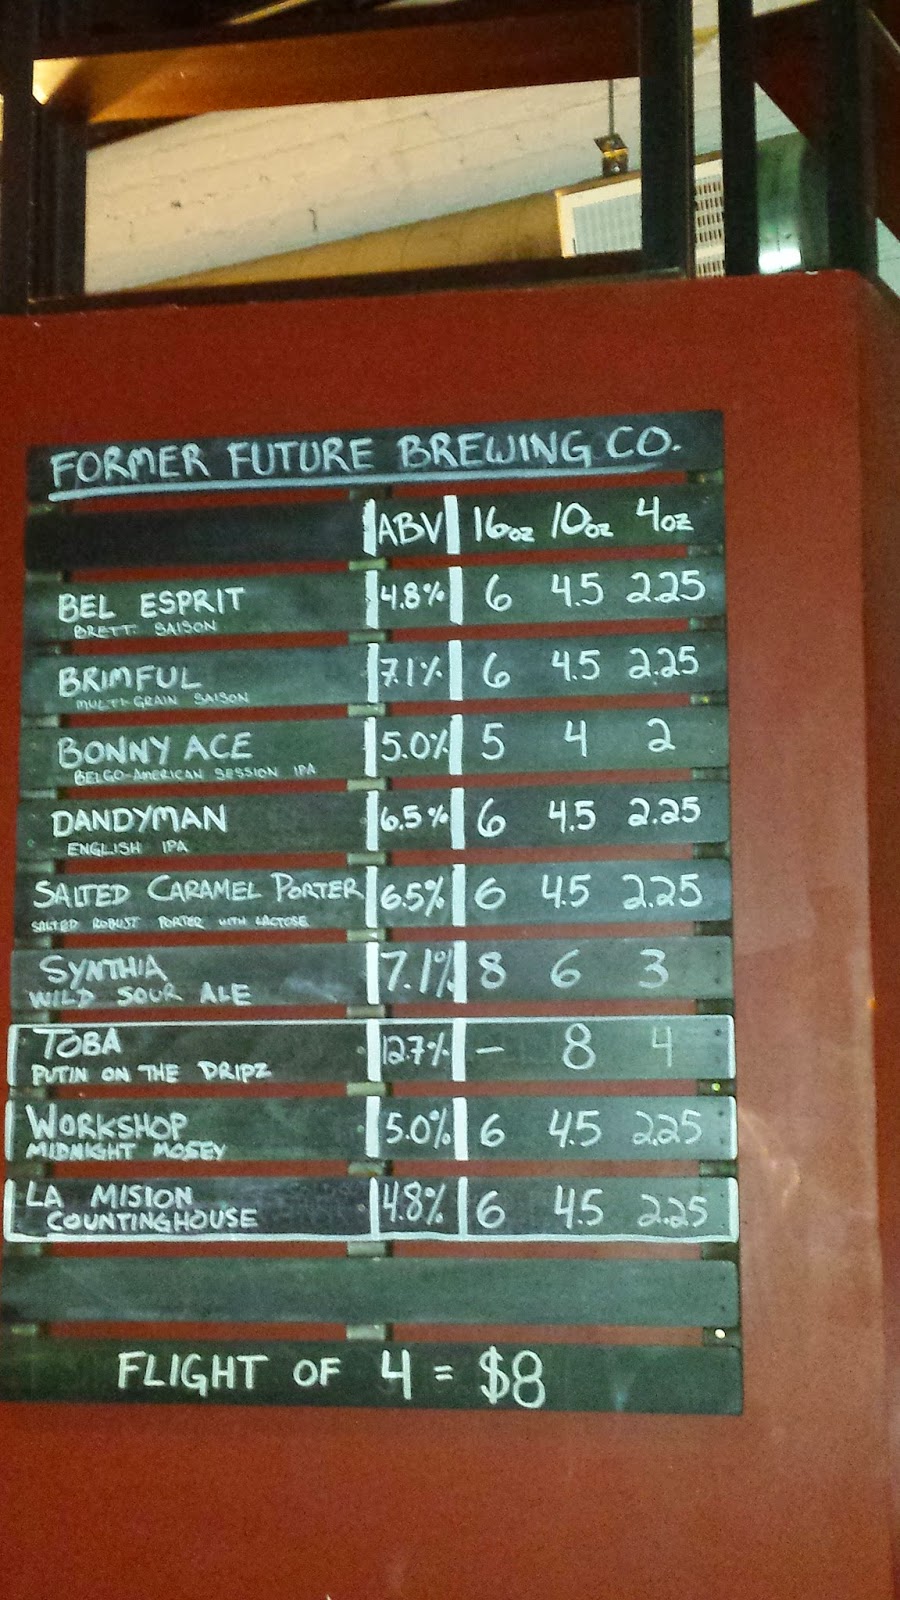 FORMER FUTURE BREWING CO.
ABV 16oz 10oz 4oz
BEL ESPRIT 4.8% 6 4.5 2.25
BRETT SAISON
BRIMFUL 7.1% 6 4.5 2.25
MULTI-GRAIN SAISON
BONNY ACE 5.0% 5 4 2
BELGO-AMERICAN SESSION IPA
DANDYMAN 6.5% 6 4.5 2.25
ENGLISH IPA
SALTED CARAMEL PORTER 6.5% 6 4.5 2.25
SALTED ROBUST PORTER WITH LACTOSE
SYNTHIA 7.1% 8 6 3
WILD SOUR ALE
TOBA 12.7% - 8 4
PUTIN ON THE DRIPZ
WORKSHOP 5.0% 6 4.5 2.25
MIDNIGHT MOSEY
LA MISION 4.8% 6 4.5 2.25
COUNTINGHOUSE
FLIGHT OF 4 = $8